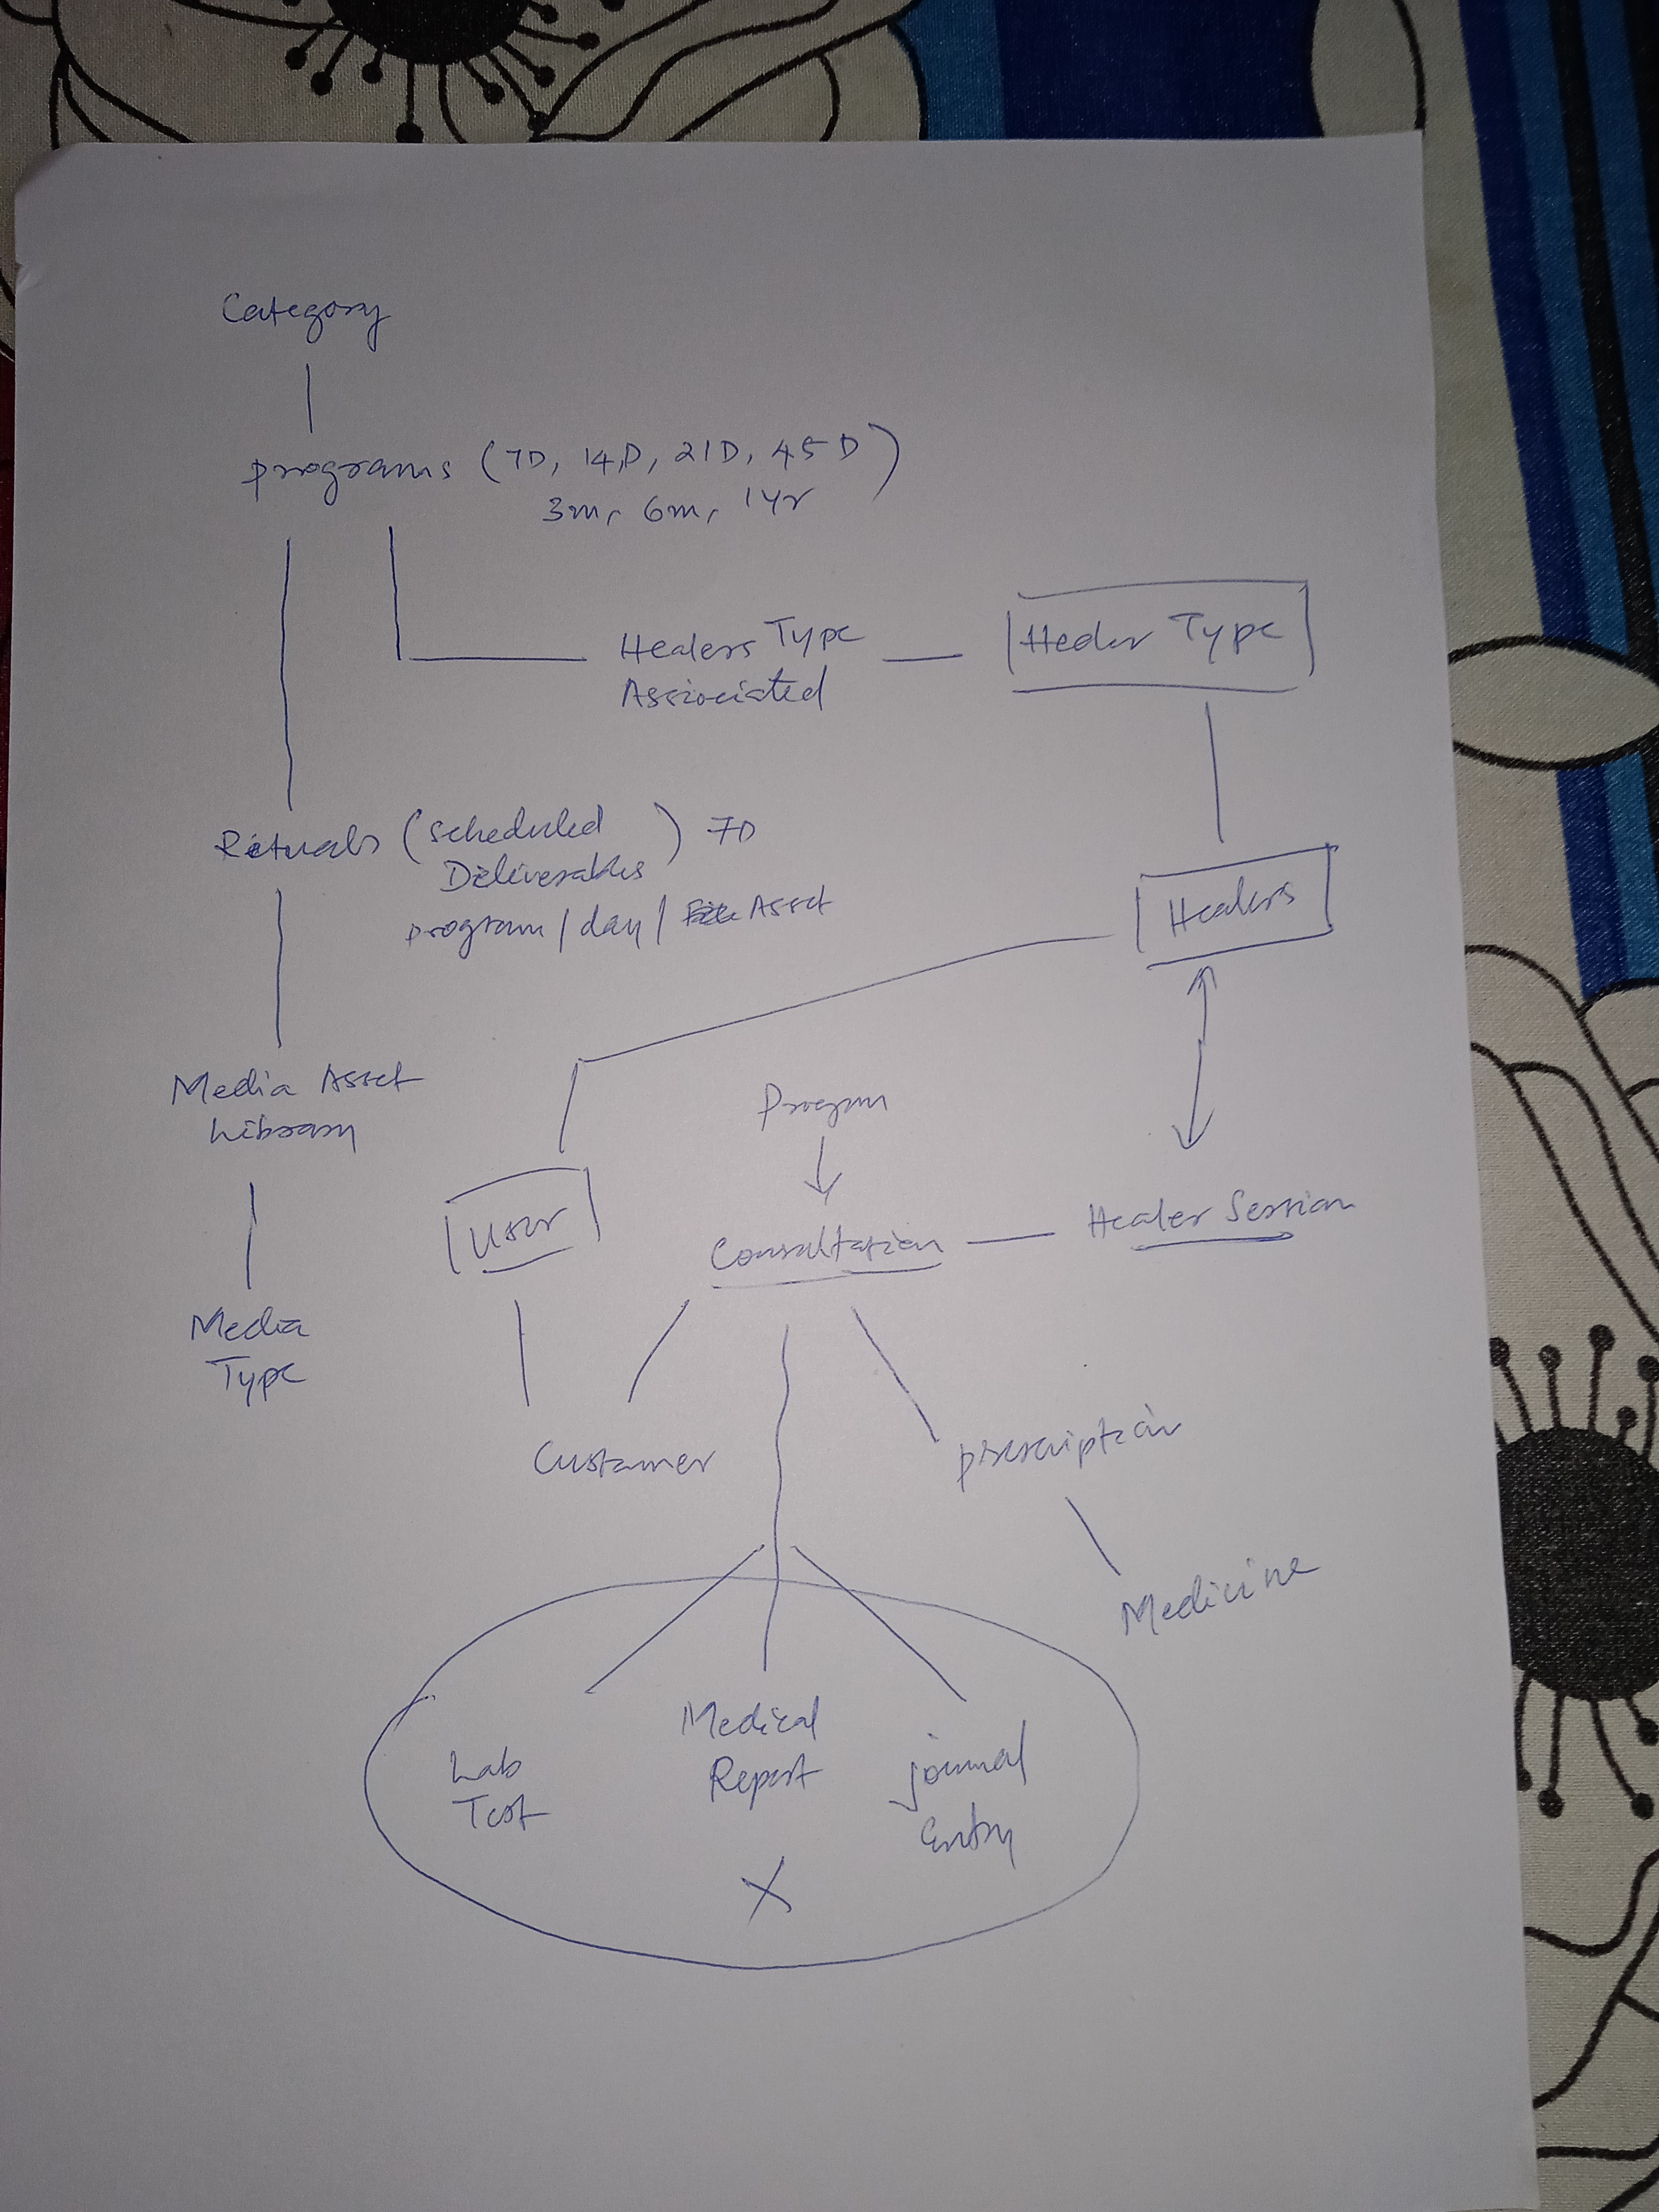 Category
programs (7D, 14D, 21D, 45D)
3m, 6m, 1yr
Healers Type
Associated
Healer Type
Rituals (scheduled
Deliverables) 7D
program / day / Asset
Healers
Media Asset
Library
Program
User
Consultation
Healer Session
Media
Type
Customer
prescription
Medicine
Lab
Test
Medical
Report
journal
Entry
X